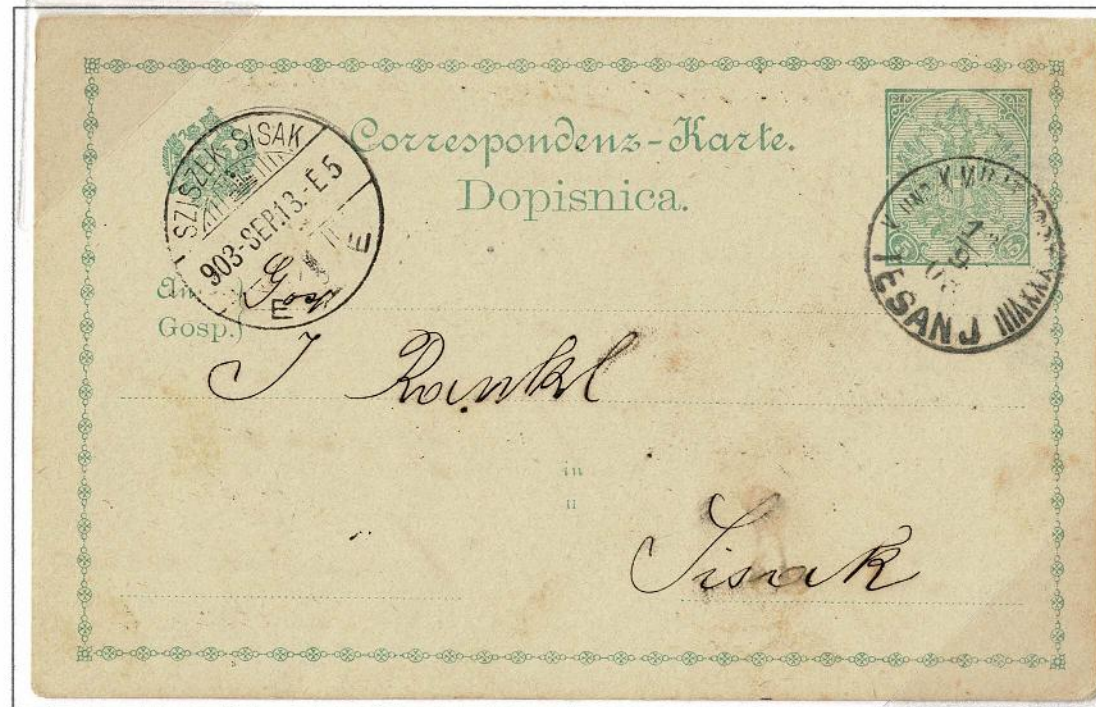 Correspondenz-Karte.
Dopisnica.
SZISZEK SISAK
903-SEP.13.-E5
E E
TESANJ XXXVIII
5
An
Gosp.)
Gosp
J Rankl
in
u
Sisak